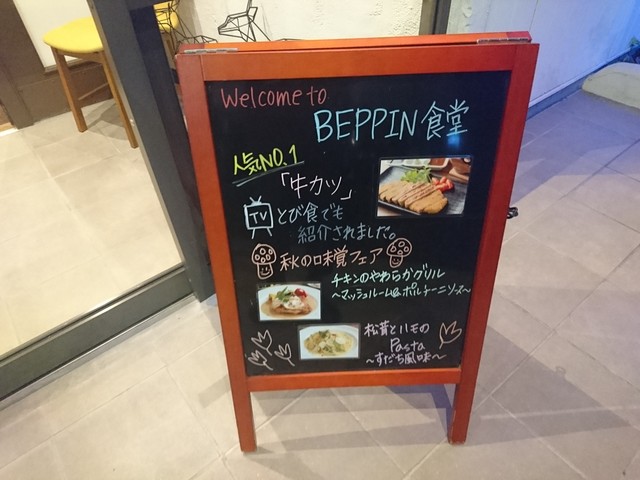 Welcome to
BEPPIN 食堂
人気NO.1
「牛カツ」
TV とび食でも
紹介されました。
秋の味覚フェア
チキンのやわらかグリル
〜マッシュルーム&ポルチーニソース〜
松茸とハモの
Pasta
〜すだち風味〜